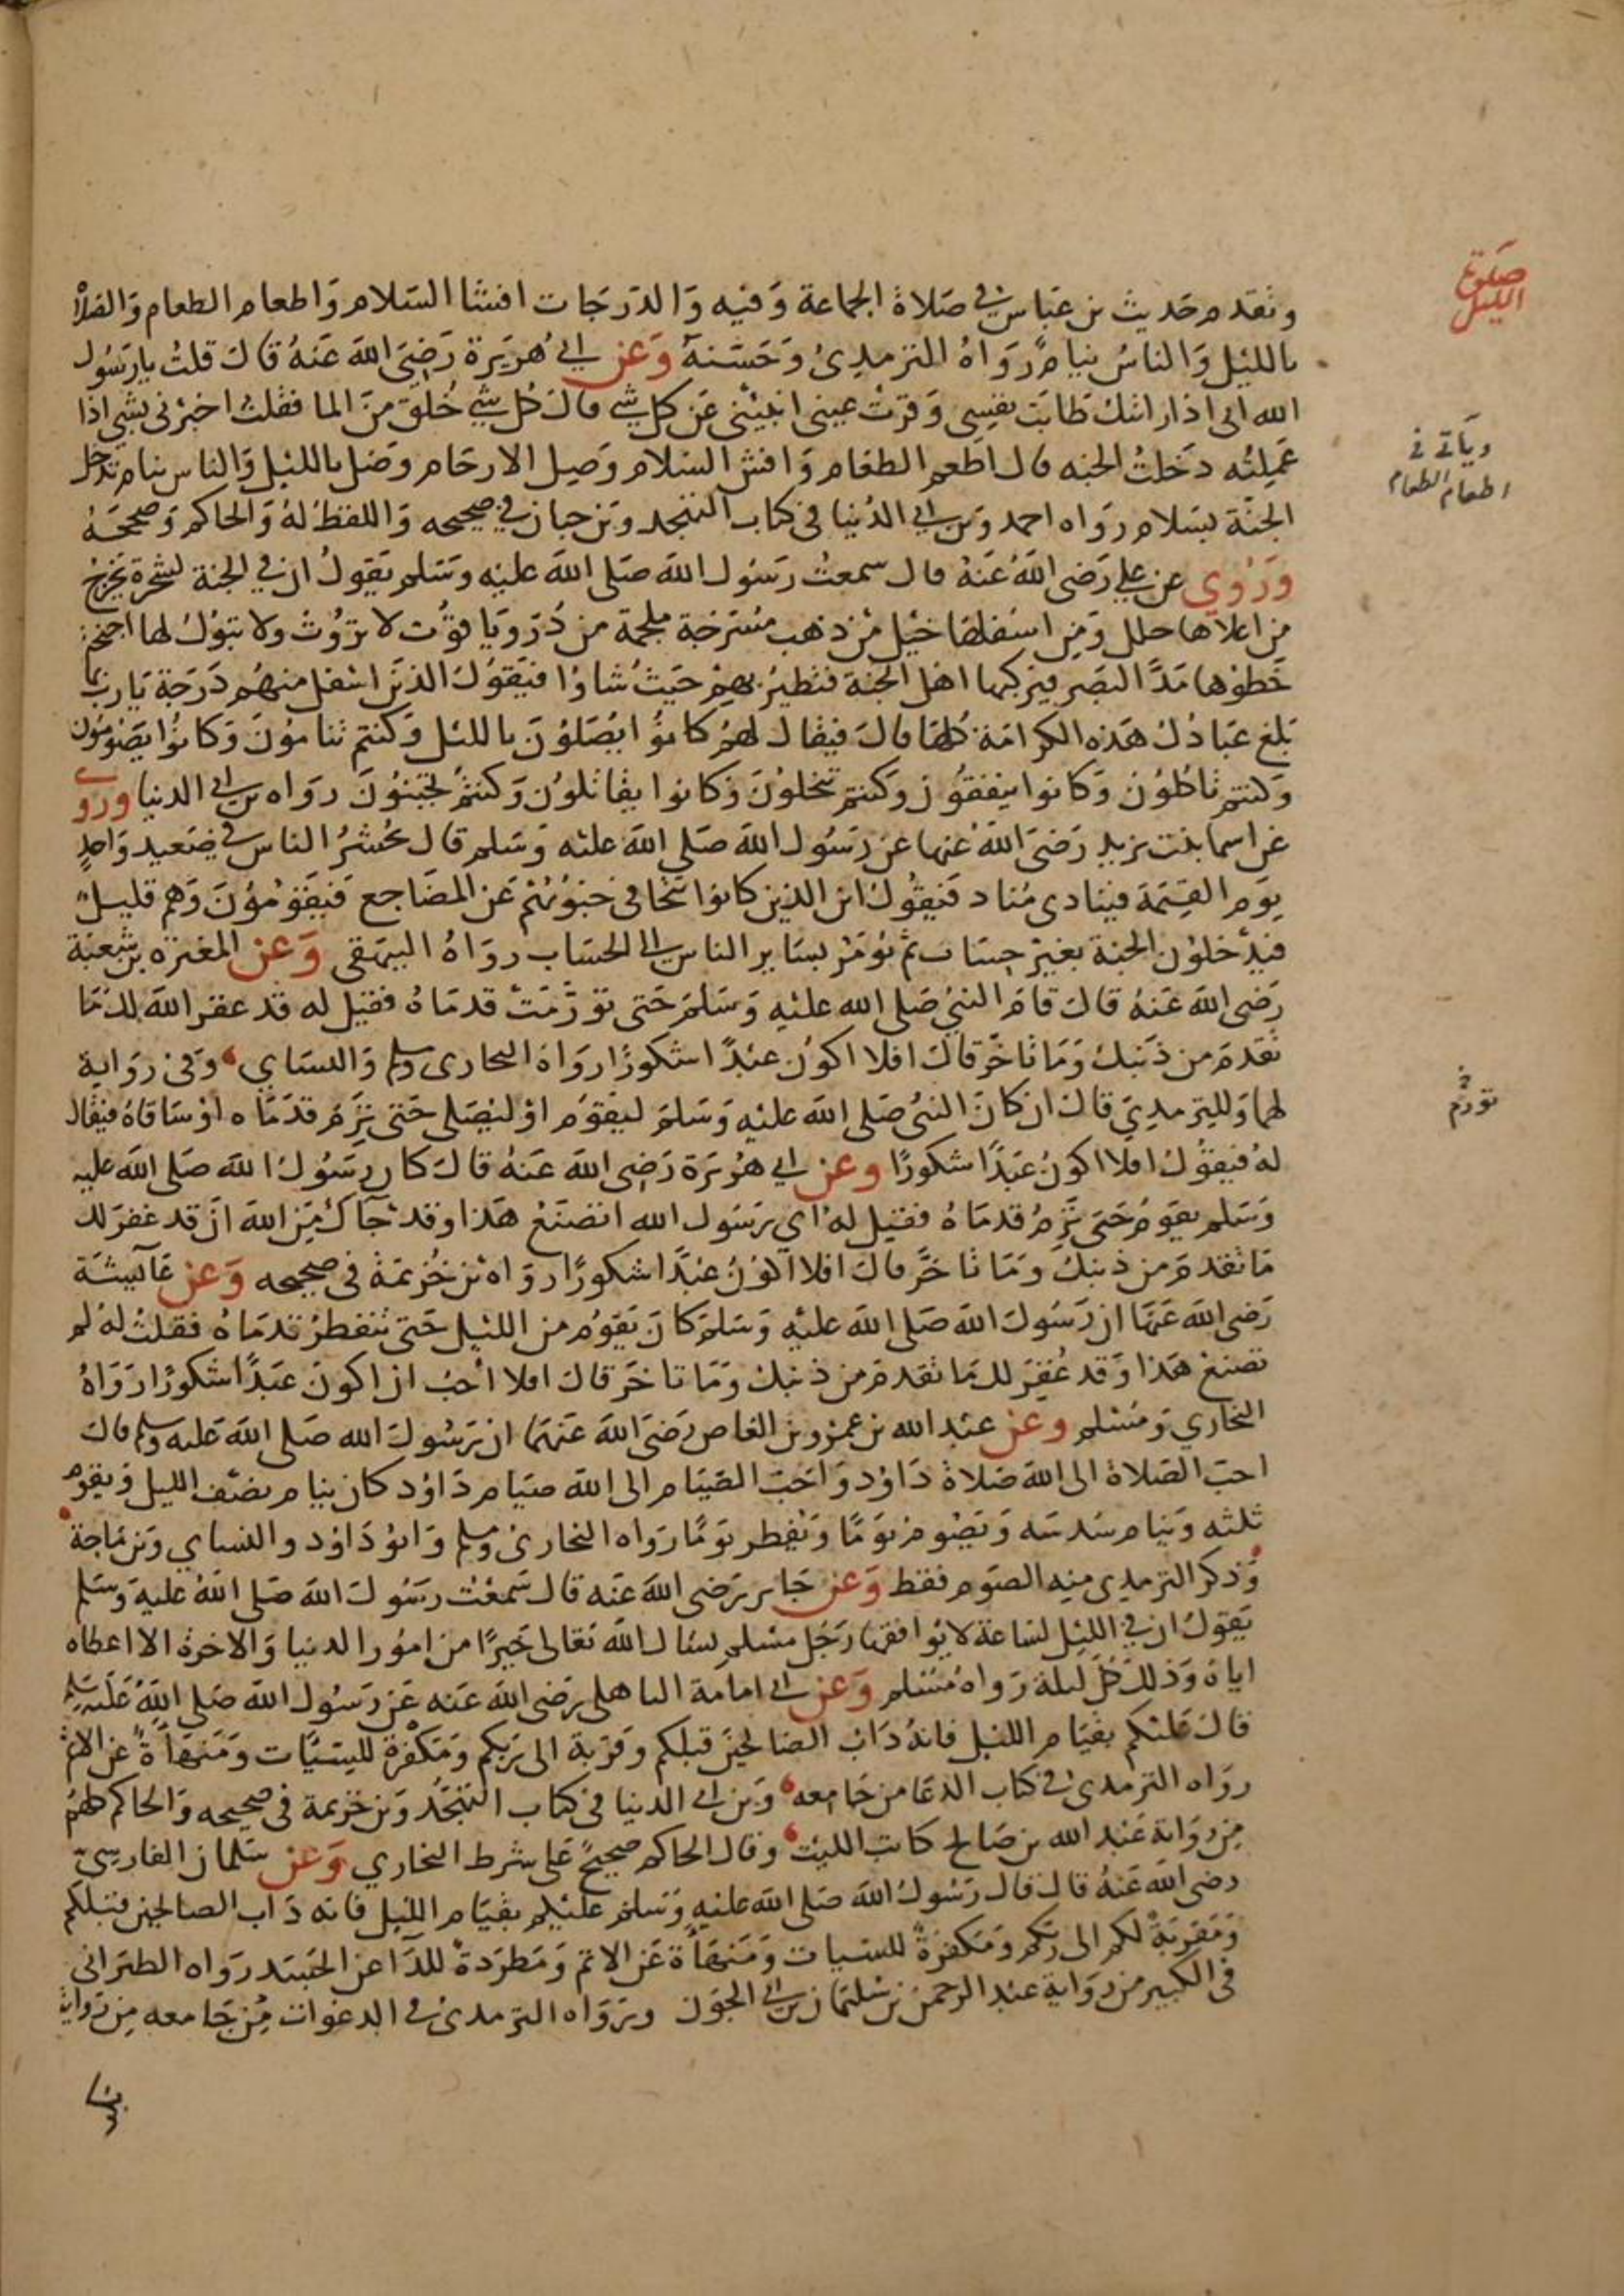 وتقدم حديث بن عباس في صلاة الجماعة وفيه والدرجات افشا السلام واطعام الطعام والصلاة
بالليل والناس نيام رواه الترمذي وحسنه وعن ابي هريرة رضي الله عنه قال قلت يا رسول
الله اني اذا رايتك طابت نفسي وقرت عيني انبئني عن كل شي قال كل شي خلق من الما فقلت اخبرني بشي اذا
عملته دخلت الجنه قال اطعم الطعام وافش السلام وصل الارحام وصل بالليل والناس نيام تدخل
الجنة بسلام رواه احمد وبن ابي الدنيا في كتاب التهجد وبن حبان في صحيحه واللفظ له والحاكم وصححه
وروي عن علي رضي الله عنه قال سمعت رسول الله صلى الله عليه وسلم يقول ان في الجنة لشجرة يخرج
من اعلاها حلل ومن اسفلها خيل من ذهب مسرجة ملجمة من در وياقوت لا تروث ولا تبول لها اجنحة
خطوها مد البصر فيركبها اهل الجنة فتطير بهم حيث شاوا فيقول الذين اسفل منهم درجة يا رب بما
بلغ عبادك هذه الكرامة كلها قال فيقال لهم كانوا يصلون بالليل وكنتم تنامون وكانوا يصومون
وكنتم تاكلون وكانوا ينفقون وكنتم تبخلون وكانوا يقاتلون وكنتم تجبنون رواه بن ابي الدنيا وروي
عن اسما بنت يزيد رضي الله عنها عن رسول الله صلى الله عليه وسلم قال يحشر الناس في صعيد واحد
يوم القيمة فينادي مناد فيقول اين الذين كانوا تتجافى جنوبهم عن المضاجع فيقومون وهم قليل
فيدخلون الجنة بغير حساب ثم يومر بساير الناس الى الحساب رواه البيهقي وعن المغيرة بن شعبة
رضي الله عنه قال قام النبي صلى الله عليه وسلم حتى تورمت قدماه فقيل له قد غفر الله لك ما
تقدم من ذنبك وما تاخر قال افلا اكون عبدًا شكورًا رواه البخاري ومسلم والنساي وفي رواية
لهما وللترمذي قال ان كان النبي صلى الله عليه وسلم ليقوم او ليصلي حتى ترم قدماه او ساقاه فيقال
له فيقول افلا اكون عبدًا شكورًا وعن ابي هريرة رضي الله عنه قال كان رسول الله صلى الله عليه
وسلم يقوم حتى ترم قدماه فقيل له اي رسول الله اتصنع هذا وقد جآك من الله ان قد غفر لك
ما تقدم من ذنبك وما تاخر قال افلا اكون عبدًا شكورًا رواه بن خزيمة في صحيحه وعن عآيشة
رضي الله عنها ان رسول الله صلى الله عليه وسلم كان يقوم من الليل حتى تتفطر قدماه فقلت له لم
تصنع هذا وقد غفر لك ما تقدم من ذنبك وما تاخر قال افلا احب ان اكون عبدًا شكورًا رواه
البخاري ومسلم وعن عبد الله بن عمرو بن العاص رضي الله عنهما ان رسول الله صلى الله عليه وسلم قال
احب الصلاة الى الله صلاة داود واحب الصيام الى الله صيام داود كان ينام نصف الليل ويقوم
ثلثه وينام سدسه ويصوم يومًا ويفطر يومًا رواه البخاري ومسلم وابو داود والنساي وبن ماجة
وذكر الترمذي منه الصوم فقط وعن جابر رضي الله عنه قال سمعت رسول الله صلى الله عليه وسلم
يقول ان في الليل لساعة لا يوافقها رجل مسلم يسال الله تعالى خيرًا من امور الدنيا والاخرة الا اعطاه
اياه وذلك كل ليلة رواه مسلم وعن ابي امامة الباهلي رضي الله عنه عن رسول الله صلى الله عليه وسلم
قال عليكم بقيام الليل فانه داب الصالحين قبلكم وقربة الى ربكم ومكفرة للسيئات ومنهاة عن الاثم
رواه الترمذي في كتاب الدعا من جامعه وبن ابي الدنيا في كتاب التهجد وبن خزيمة في صحيحه والحاكم كلهم
من رواية عبد الله بن صالح كاتب الليث وقال الحاكم صحيح على شرط البخاري وعن سلمان الفارسي
رضي الله عنه قال قال رسول الله صلى الله عليه وسلم عليكم بقيام الليل فانه داب الصالحين قبلكم
ومقربة لكم الى ربكم ومكفرة للسيات ومنهاة عن الاثم ومطردة للدا عن الجسد رواه الطبراني
في الكبير من رواية عبد الرحمن بن سليمان بن ابي الجون ورواه الترمذي في الدعوات من جامعه من رواية
صلوة
الليل
وياتي في
اطعام الطعام
تورم